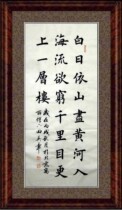 白日依山盡黃河入
海流欲窮千里目更
上一層樓